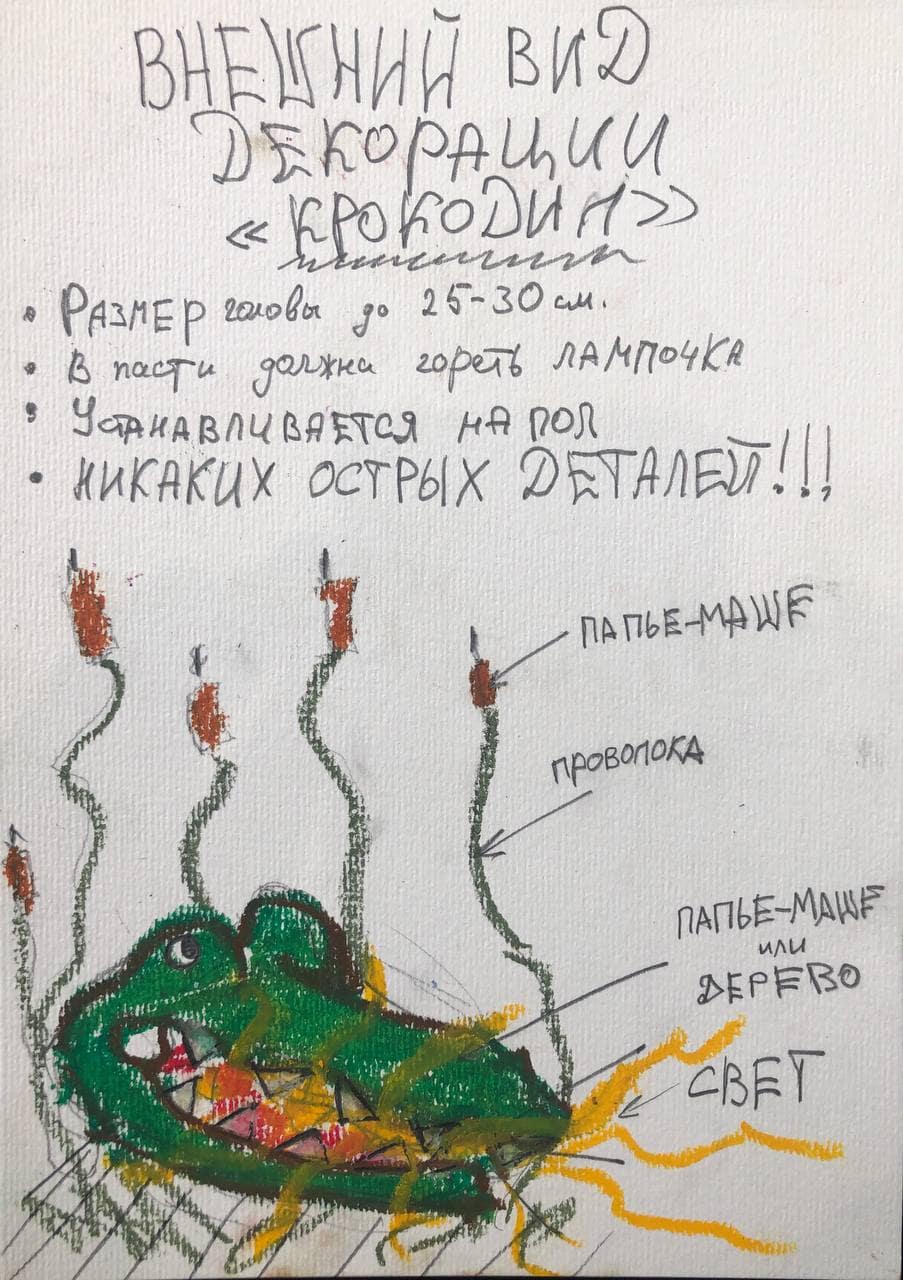 ВНЕШНИЙ ВИД
ДЕКОРАЦИИ
«КРОКОДИЛ»
• РАЗМЕР головы до 25-30 см.
• В пасти должна гореть ЛАМПОЧКА
• УСТАНАВЛИВАЕТСЯ НА ПОЛ
• НИКАКИХ ОСТРЫХ ДЕТАЛЕЙ!!!
ПАПЬЕ-МАШЕ
ПРОВОЛОКА
ПАПЬЕ-МАШЕ
или
ДЕРЕВО
СВЕТ